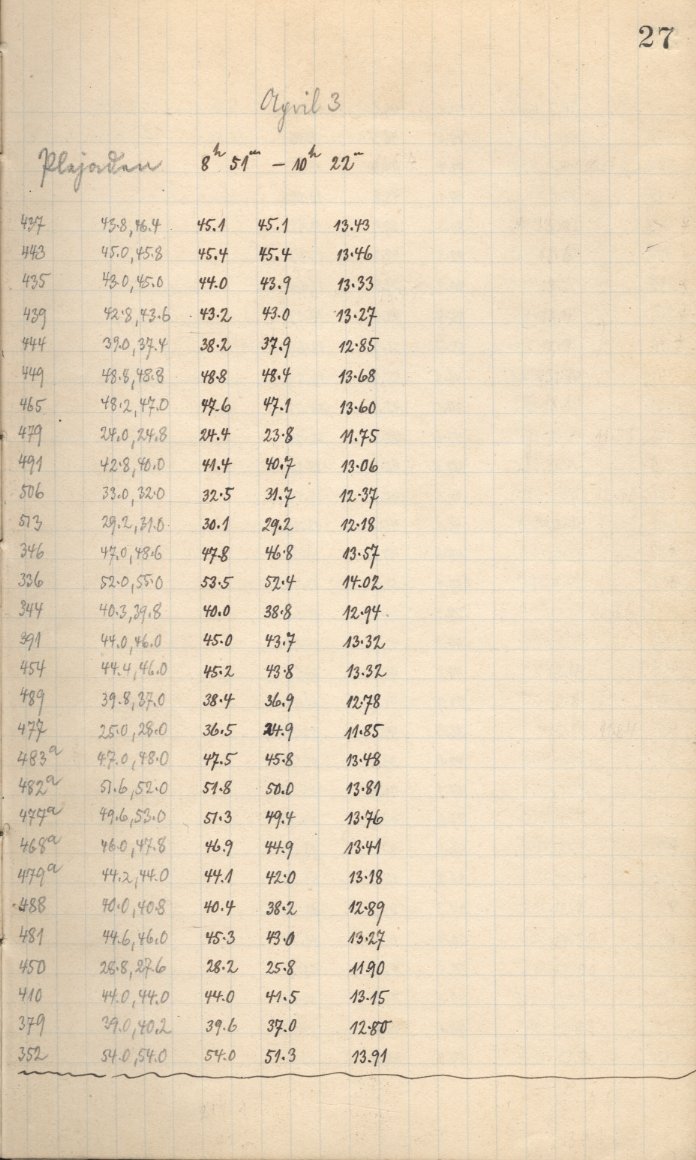 27
April 3
Plejaden 8h 51m – 10h 22m
437 43.8, 46.4 45.1 45.1 13.43
443 45.0, 45.8 45.4 45.4 13.46
435 43.0, 45.0 44.0 43.9 13.33
439 42.8, 43.6 43.2 43.0 13.27
444 39.0, 37.4 38.2 37.9 12.85
449 48.8, 48.8 48.8 48.4 13.68
465 48.2, 47.0 47.6 47.1 13.60
479 24.0, 24.8 24.4 23.8 11.75
491 42.8, 40.0 41.4 40.7 13.06
506 33.0, 32.0 32.5 31.7 12.37
513 29.2, 31.0 30.1 29.2 12.18
346 47.0, 48.6 47.8 46.8 13.57
336 52.0, 55.0 53.5 52.4 14.02
344 40.3, 39.8 40.0 38.8 12.94
391 44.0, 46.0 45.0 43.7 13.32
454 44.4, 46.0 45.2 43.8 13.32
489 39.8, 37.0 38.4 36.9 12.78
477 25.0, 28.0 36.5 24.9 11.85
483a 47.0, 48.0 47.5 45.8 13.48
482a 51.6, 52.0 51.8 50.0 13.81
477a 49.6, 53.0 51.3 49.4 13.76
468a 46.0, 47.8 46.9 44.9 13.41
479a 44.2, 44.0 44.1 42.0 13.18
488 40.0, 40.8 40.4 38.2 12.89
481 44.6, 46.0 45.3 43.0 13.27
450 28.8, 27.6 28.2 25.8 11.90
410 44.0, 44.0 44.0 41.5 13.15
379 39.0, 40.2 39.6 37.0 12.80
352 54.0, 54.0 54.0 51.3 13.91